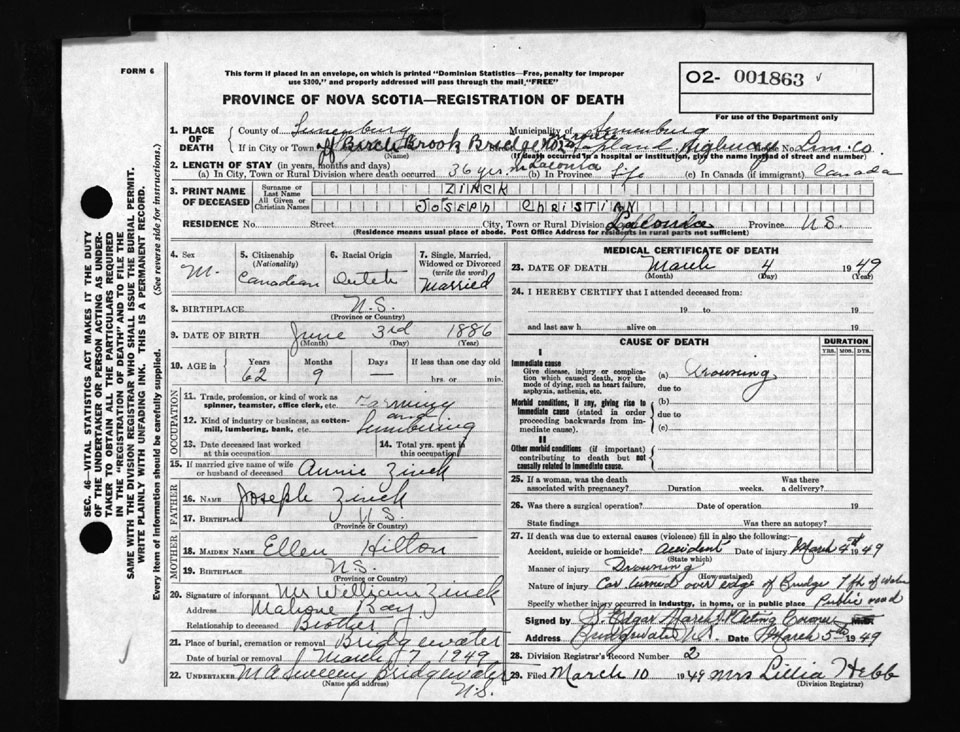 FORM 6
This form if placed in an envelope, on which is printed "Dominion Statistics—Free, penalty for improper
use $300," and properly addressed will pass through the mail "FREE"
PROVINCE OF NOVA SCOTIA—REGISTRATION OF DEATH
O2- 001863 v
For use of the Department only
SEC. 46—VITAL STATISTICS ACT MAKES IT THE DUTY
OF THE UNDERTAKER OR PERSON ACTING AS UNDER-
TAKER TO OBTAIN ALL THE PARTICULARS REQUIRED
IN THE "REGISTRATION OF DEATH" AND TO FILE THE
SAME WITH THE DIVISION REGISTRAR WHO SHALL ISSUE THE BURIAL PERMIT.
WRITE PLAINLY WITH UNFADING INK. THIS IS A PERMANENT RECORD.
Every item of Information should be carefully supplied. (See reverse side for instructions.)
1. PLACE OF DEATH County of Lunenburg Municipality of Lunenburg
If in City or Town Birch Brook Bridge No 2 Lapland Highway Lun. Co.
(Name) (If death occurred in a hospital or institution, give the name instead of street and number)
2. LENGTH OF STAY (in years, months and days)
(a) In City, Town or Rural Division where death occurred 36 yrs. in Laconia (b) In Province Life (c) In Canada (if immigrant) Canada
3. PRINT NAME OF DECEASED Surname or Last Name ZINCK
All Given or Christian Names JOSEPH CHRISTIAN
RESIDENCE No. Street City, Town or Rural Division Laconia Province N.S.
(Residence means usual place of abode. Post Office Address for residents in rural parts not sufficient)
4. Sex M.
5. Citizenship (Nationality) Canadian
6. Racial Origin Dutch
7. Single, Married, Widowed or Divorced (write the word) Married
8. BIRTHPLACE N.S.
(Province or Country)
9. DATE OF BIRTH June 3rd 1886
(Month) (Day) (Year)
10. AGE in Years 62 Months 9 Days — If less than one day old hrs. or min.
OCCUPATION
11. Trade, profession, or kind of work as spinner, teamster, office clerk, etc. Farming
and
12. Kind of industry or business, as cotton-mill, lumbering, bank, etc. Lumbering
13. Date deceased last worked at this occupation
14. Total yrs. spent in this occupation
15. If married give name of wife or husband of deceased Annie Zinck
FATHER
16. NAME Joseph Zinck
17. BIRTHPLACE N.S.
(Province or Country)
MOTHER
18. MAIDEN NAME Ellen Hilton
19. BIRTHPLACE N.S.
(Province or Country)
20. Signature of informant Mr William Zinck
Address Mahone Bay
Relationship to deceased Brother
21. Place of burial, cremation or removal Bridgewater
Date of burial or removal March 7 1949
22. UNDERTAKER M A Sweeny Bridgewater
(Name and address) N.S.
MEDICAL CERTIFICATE OF DEATH
23. DATE OF DEATH March 4 1949
(Month) (Day) (Year)
24. I HEREBY CERTIFY that I attended deceased from:
19 to 19
and last saw h alive on 19
CAUSE OF DEATH DURATION
YRS. MOS. DYS.
I
Immediate cause
Give disease, injury or complication which caused death, NOT the mode of dying, such as heart failure, asphyxia, asthenia, etc.
(a) Drowning
due to
Morbid conditions, if any, giving rise to immediate cause (stated in order proceeding backwards from immediate cause).
(b)
due to
(c)
II
Other morbid conditions (if important) contributing to death but not causally related to immediate cause.
25. If a woman, was the death associated with pregnancy? Duration weeks. Was there a delivery?
26. Was there a surgical operation? Date of operation 19
State findings Was there an autopsy?
27. If death was due to external causes (violence) fill in also the following:
Accident, suicide or homicide? accident Date of injury March 4th 1949
(State which)
Manner of injury Drowning
(How sustained)
Nature of injury Car turned over edge of Bridge 7 ft of water
Specify whether injury occurred in industry, in home, or in public place Public road
Signed by S. Edgar March Acting Coroner M.D.
Address Bridgewater N.S. Date March 5th 1949
28. Division Registrar's Record Number 2
29. Filed March 10 1949 Mrs Lillia Hebb
(Division Registrar)